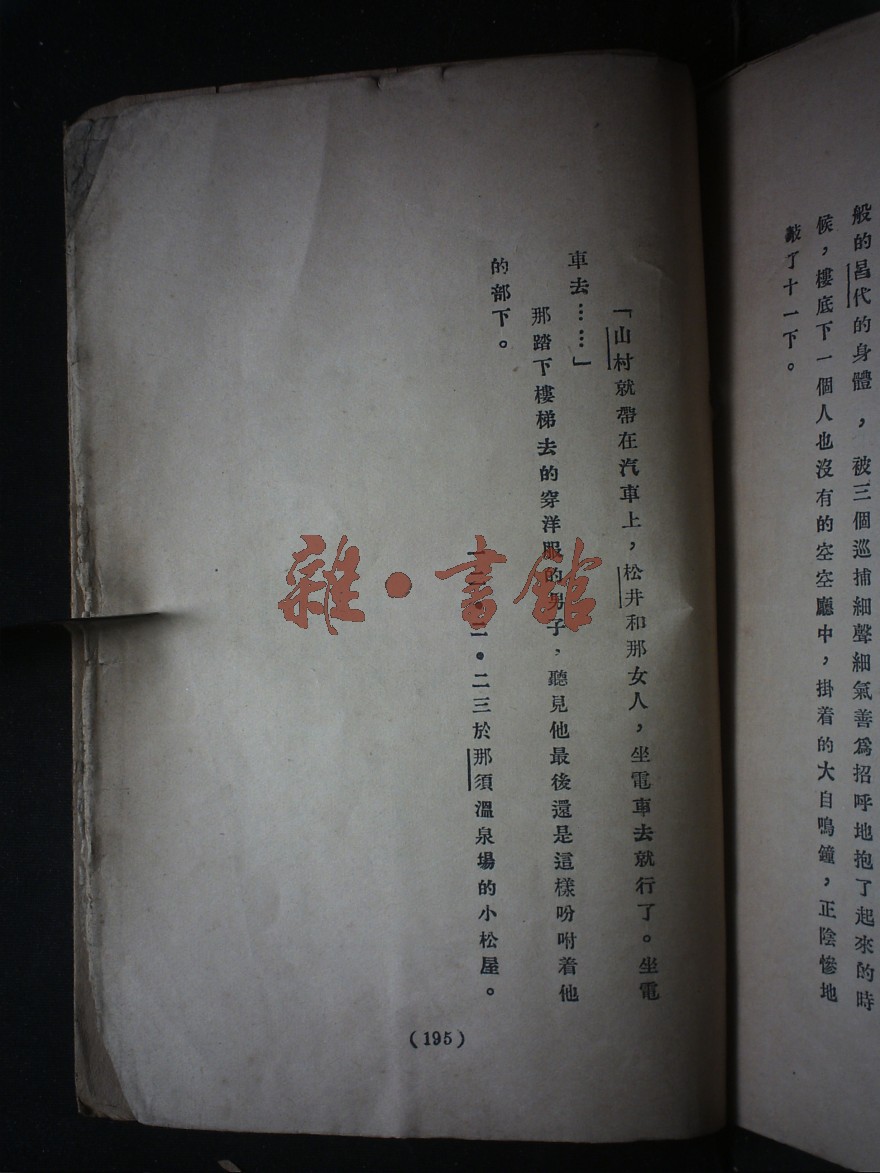 般的昌代的身體，被三個巡捕細聲細氣善爲招呼地抱了起來的時
候，樓底下一個人也沒有的空空廳中，掛着的大自鳴鐘，正陰慘地
敲了十一下。
「山村就帶在汽車上，松井和那女人，坐電車去就行了。坐電
車去……」
那踏下樓梯去的穿洋服的男子，聽見他最後還是這樣吩咐着他
的部下。
二三於那須溫泉場的小松屋。
(195)
雜・書館